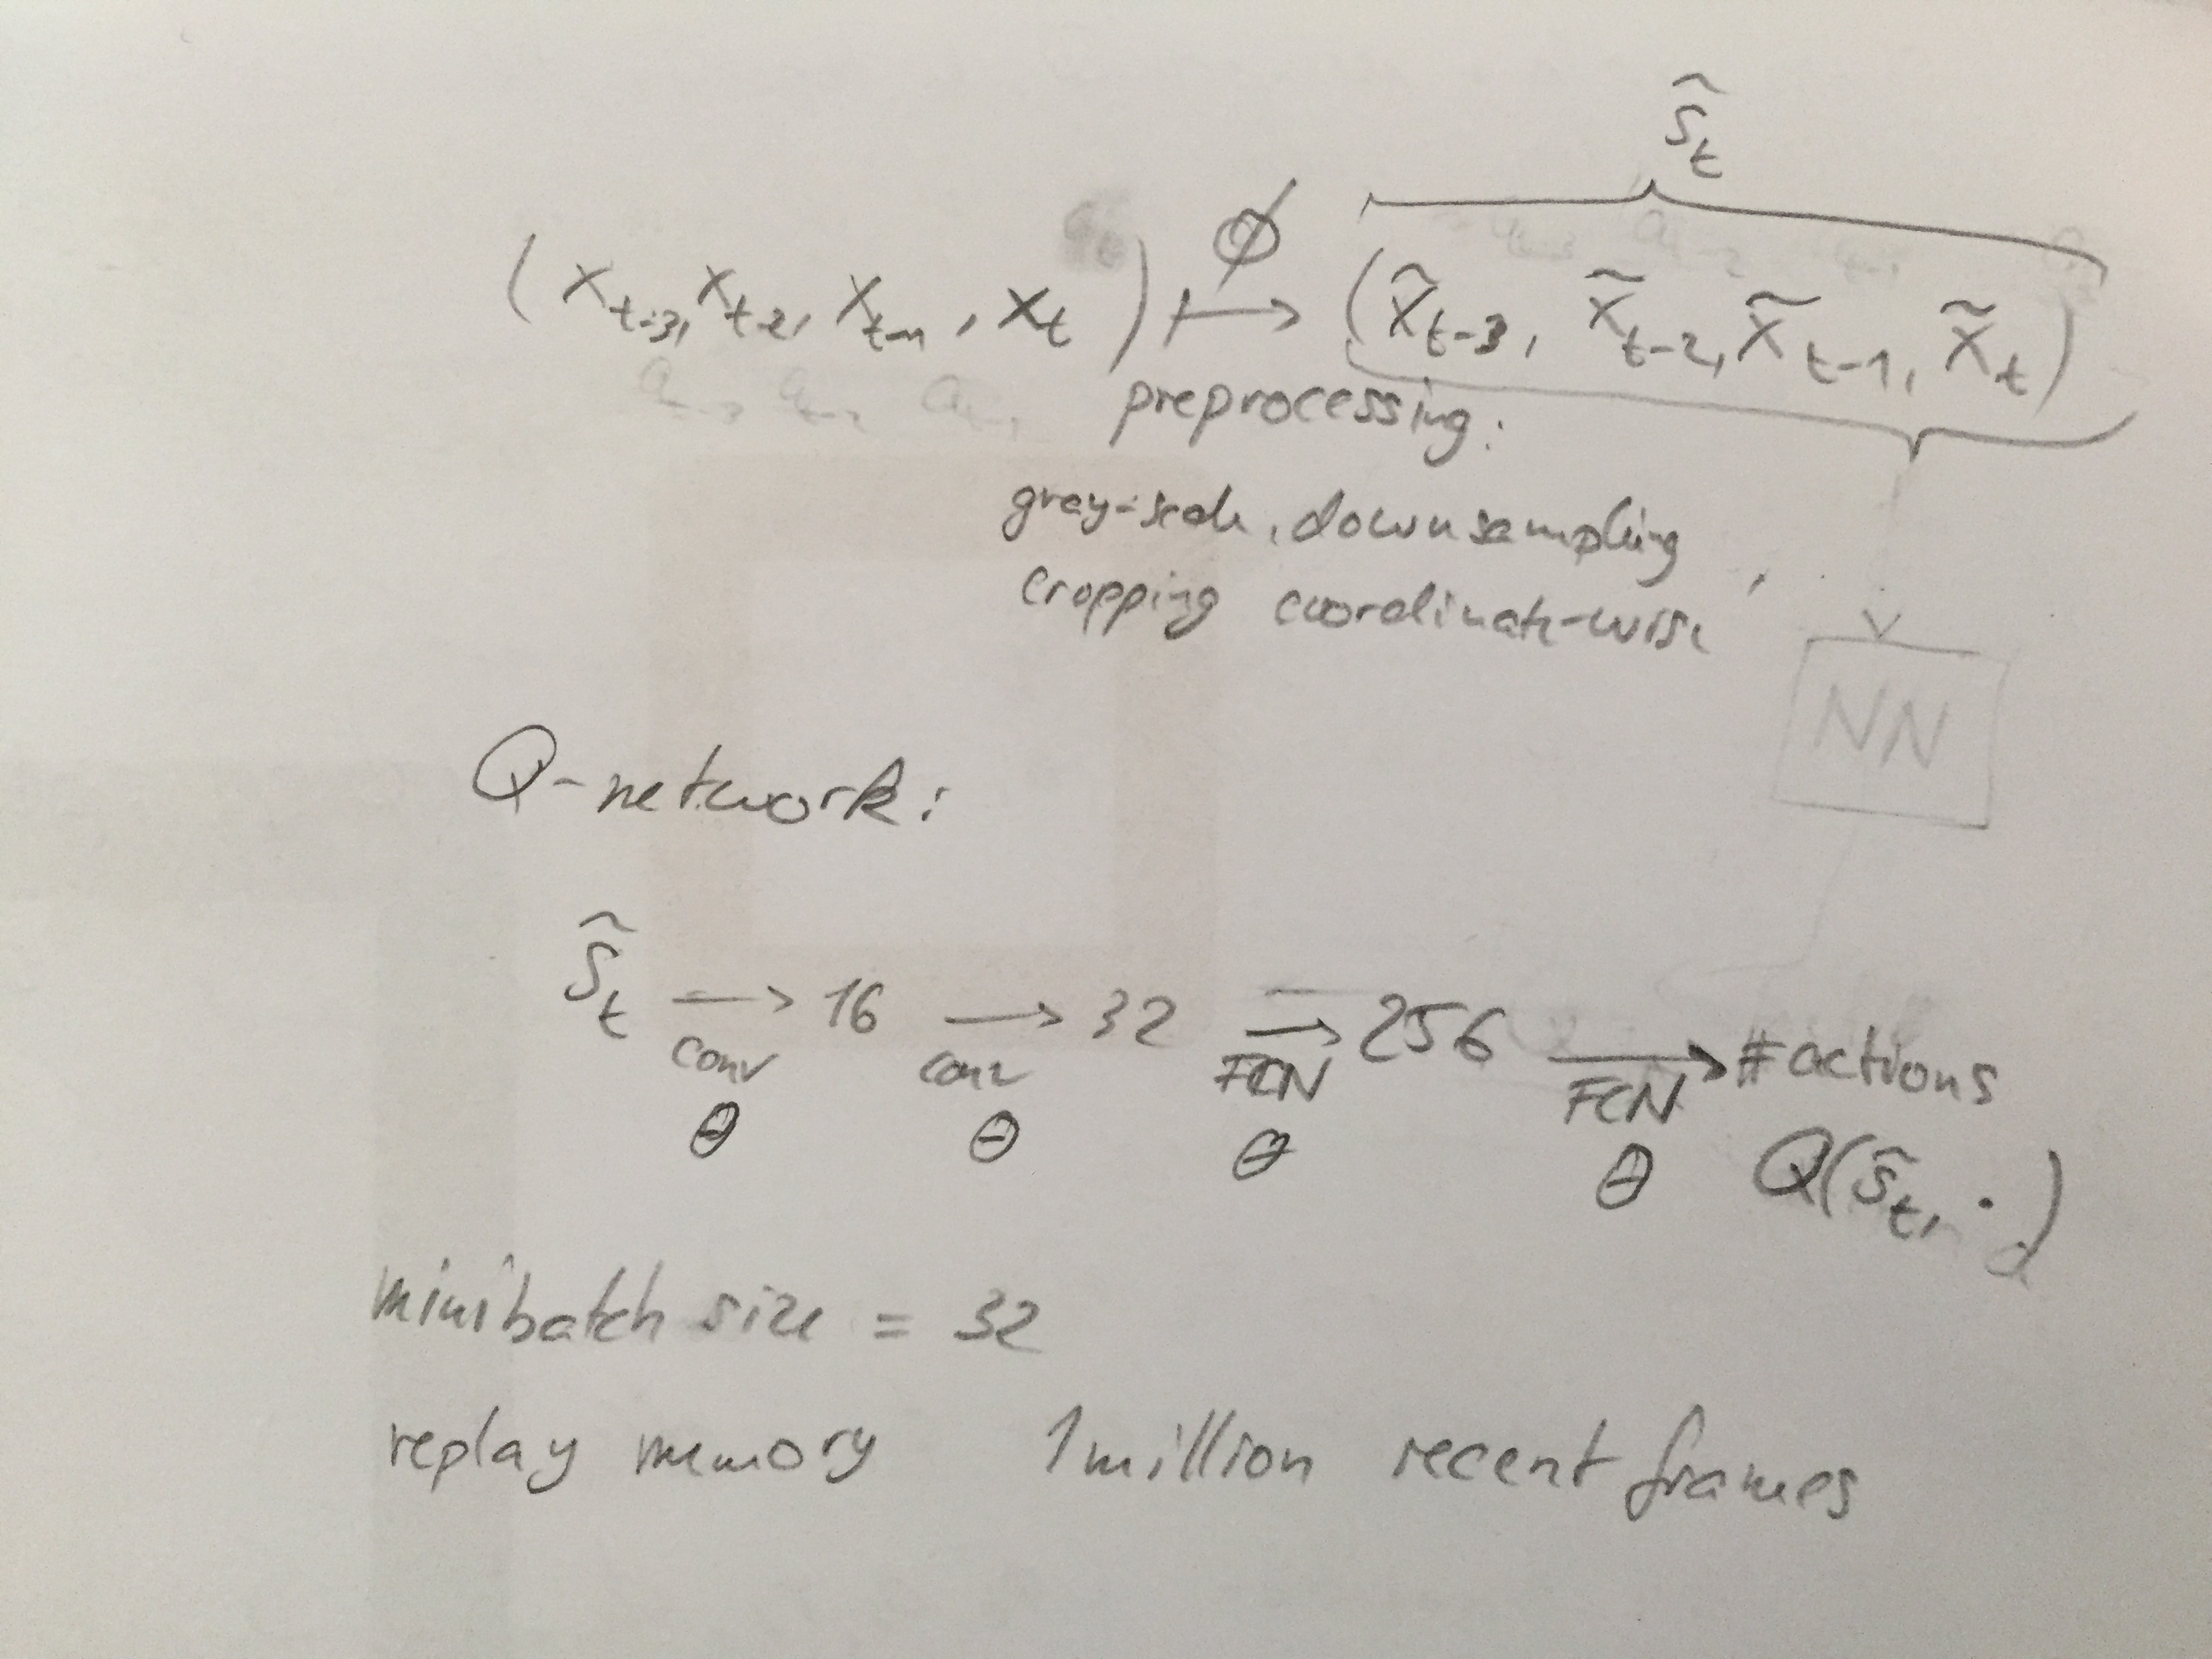 s̃_t
(x_{t-3}, x_{t-2}, x_{t-1}, x_t) ↦ ϕ (x̃_{t-3}, x̃_{t-2}, x̃_{t-1}, x̃_t)
preprocessing:
gray-scale, downsampling,
cropping coordinate-wise
NN
Q-network:
s̃_t → 16 → 32 → 256 → #actions
conv conv FCN FCN
θ θ θ θ Q(s̃_t, ·)
a
minibatch size = 32
replay memory 1 million recent frames